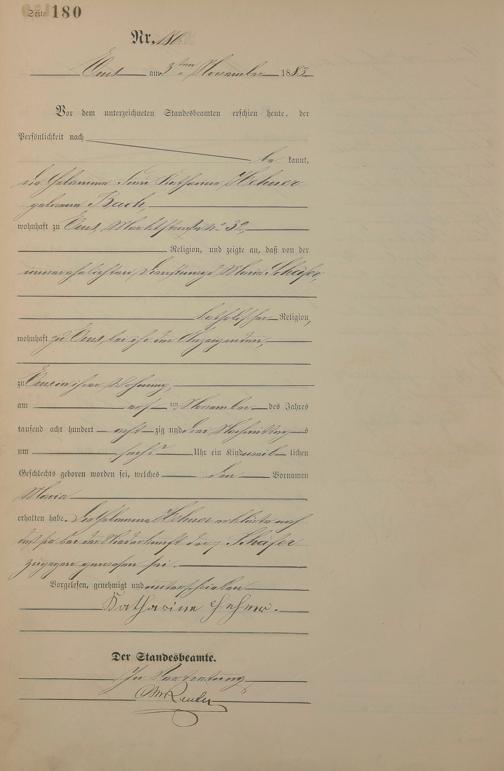 Seite 180
Nr. 180
Ems am 3ten November 1883
Vor dem unterzeichneten Standesbeamten erschien heute, der
Persönlichkeit nach
be kannt,
die Hebamme Frau Katharina Hehner
geborene Bach,
wohnhaft zu Ems, Marktstraße No 32,
Religion, und zeigte an, daß von der
unverehelichten, Maria Schäfer,
katholischer Religion,
wohnhaft zu Ems, bei ihr der Anzeigenden,
zu Ems in ihrer Wohnung,
am ten November des Jahres
tausend acht hundert acht zig und drei Vormittags
um sechs Uhr ein Kind weib lichen
Geschlechts geboren worden sei, welches den Vornamen
Maria
erhalten habe. Die Hebamme Hehner erklärte noch
daß sie bei der Niederkunft der Schäfer
zugegen gewesen sei.
Vorgelesen, genehmigt und unterschrieben
Katharine Hehner.
Der Standesbeamte.
In Vertretung